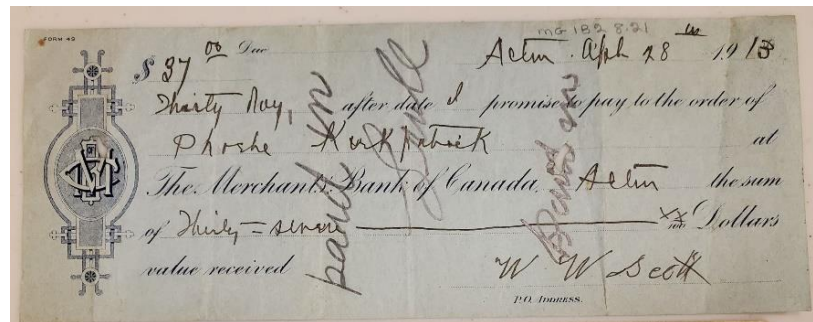 FORM 49
MG 1B2 8.21
$ 37 00 Due Acton. Aph 28 th 1913
Thirty Day, after date I promise to pay to the order of
Phoebe Kirkpatrick at
The Merchants Bank of Canada, Acton the sum
of Thirty=seven xx/100 Dollars
value received
W W Scott
P.O. ADDRESS.
paid in
full